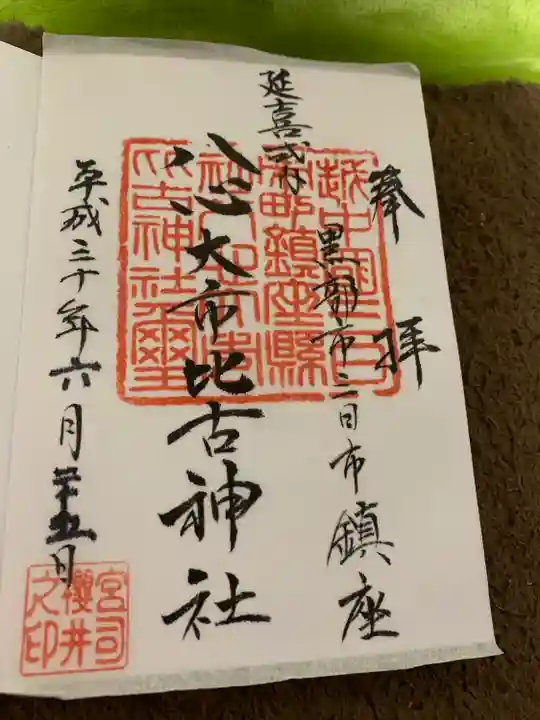 奉拝
黒部市三日市鎮座
延喜式内
八心大市比古神社
平成三十年六月廿五日
越中國三日
市町鎮座縣
比古神社璽
宮司
櫻井
之印